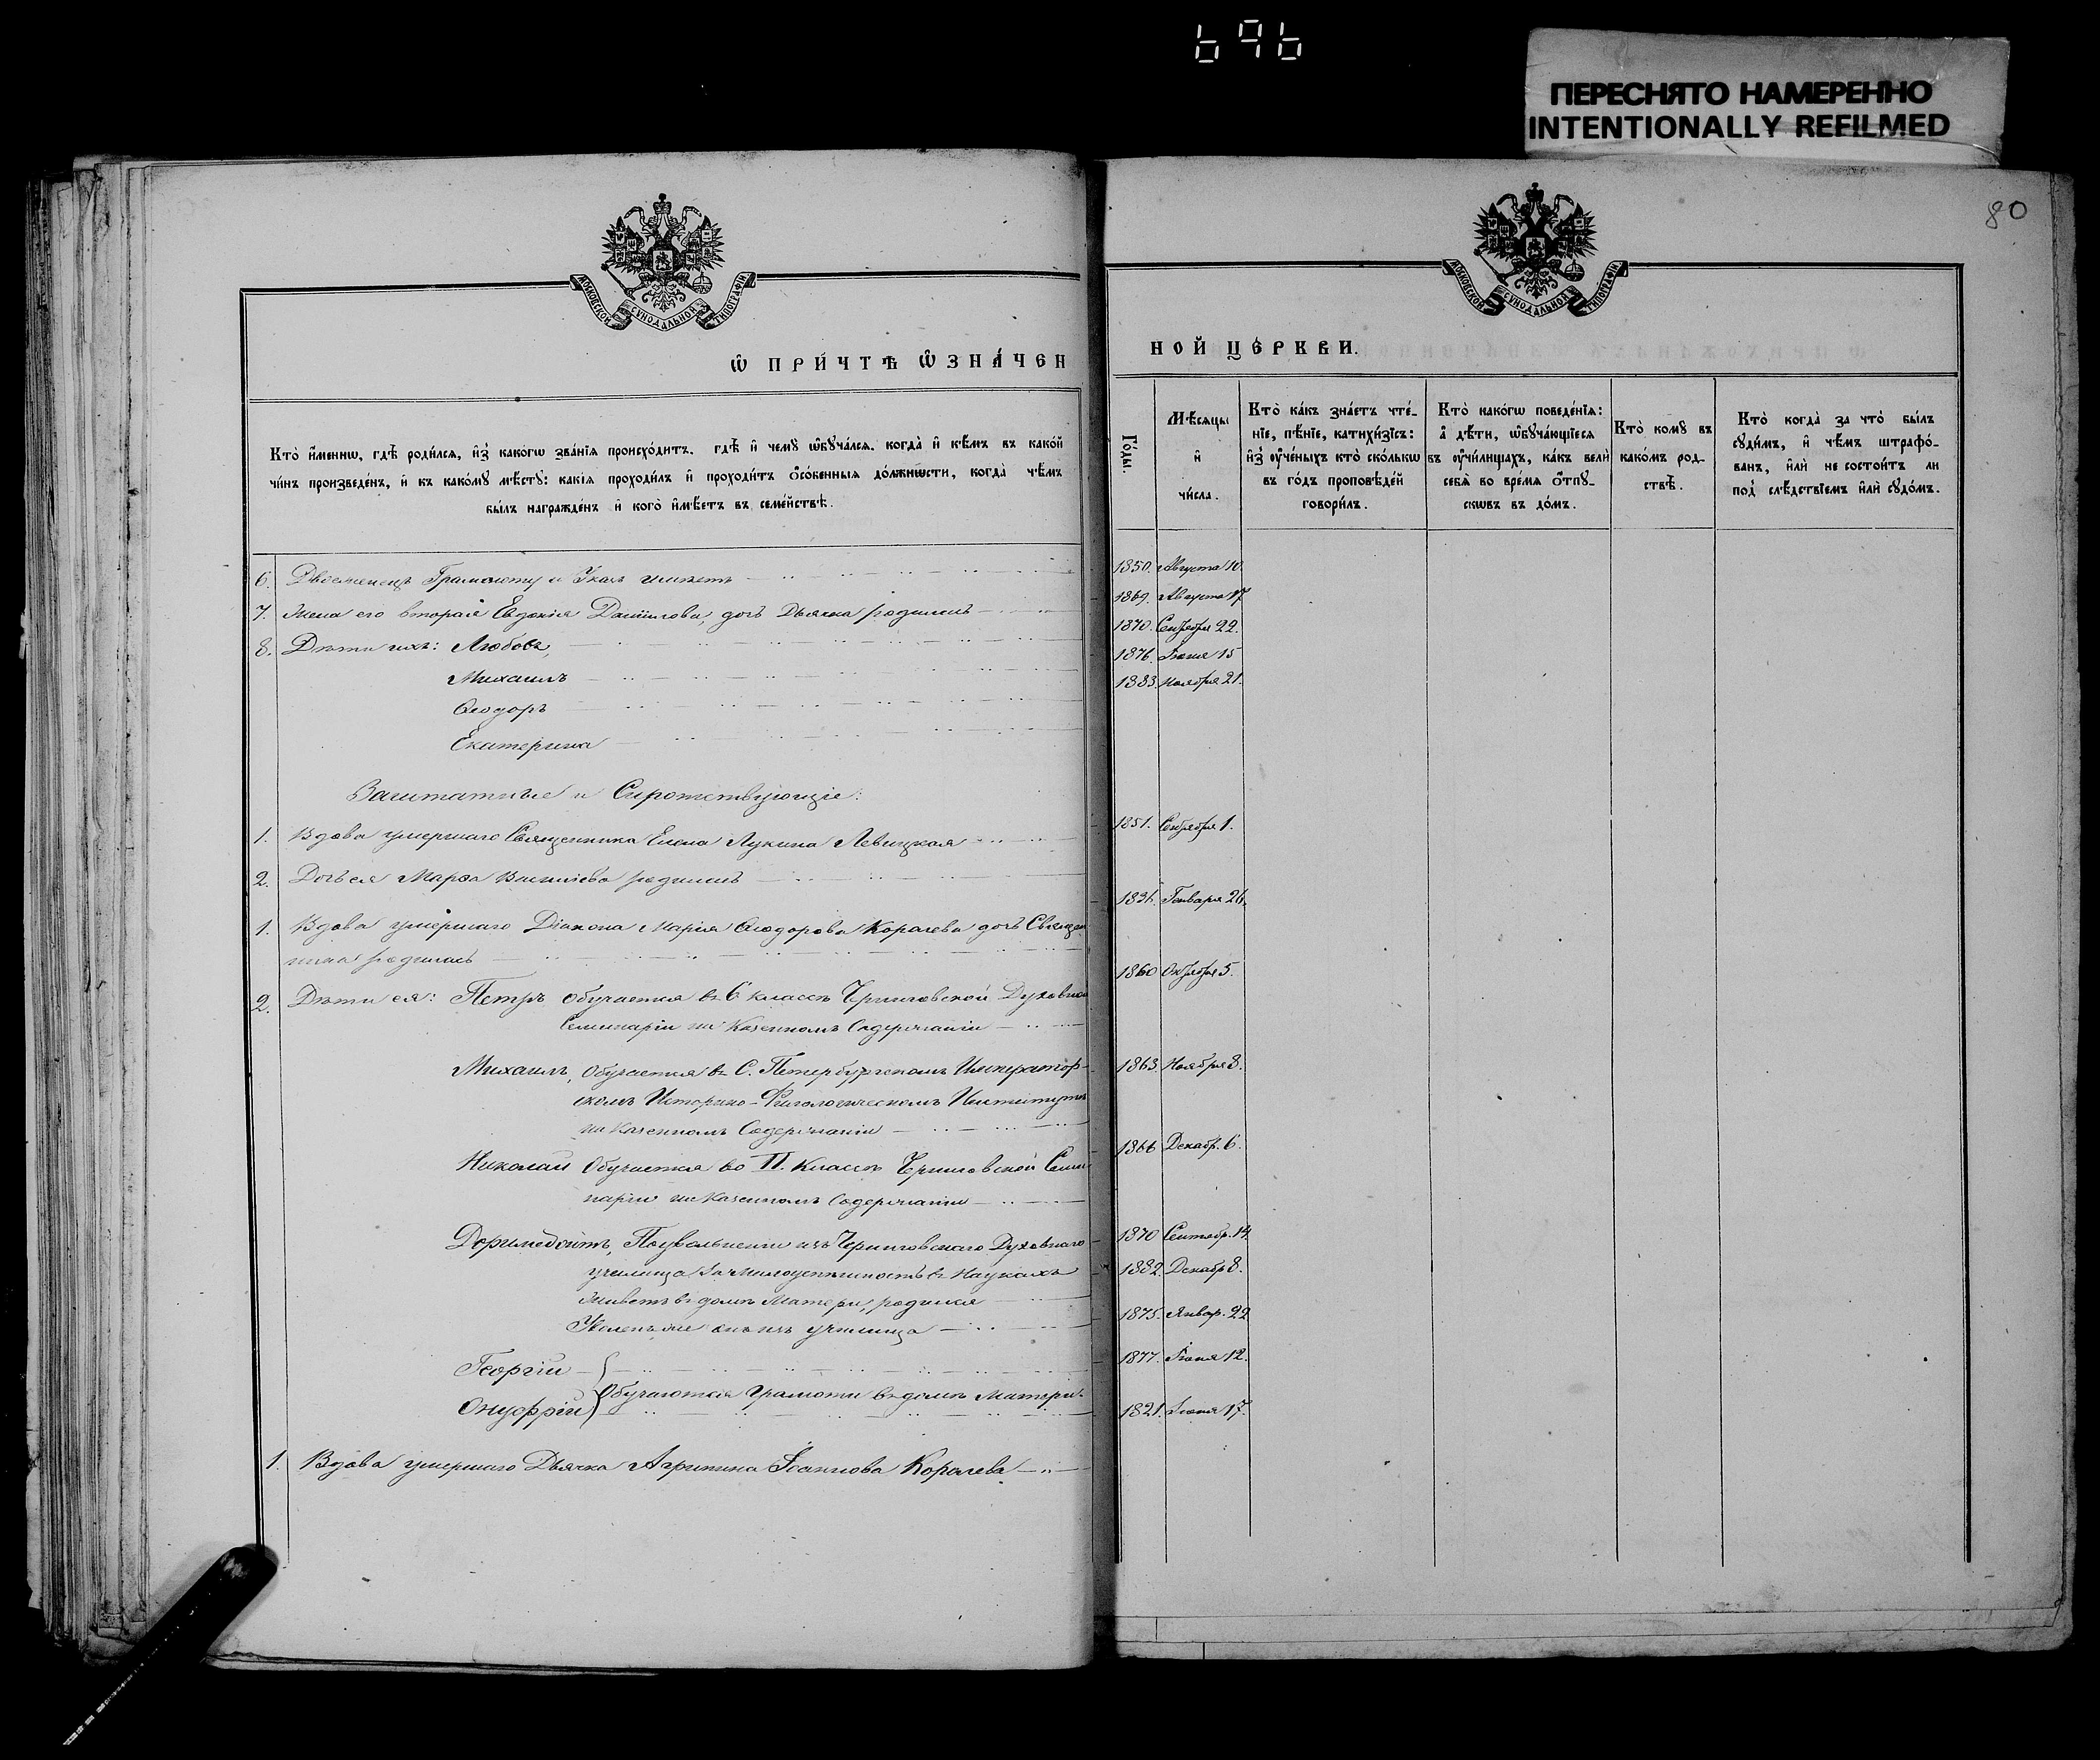 696
ПЕРЕСНЯТО НАМЕРЕННО
INTENTIONALLY REFILMED
80
МОСКОВСКОЙ СУНОДАЛЬНОЙ ТИПОГРАФІИ
Ѡ ПРИ́ЧТѢ ѠЗНА́ЧЕН
Кто̀ и҆́меннѡ, гдѣ̀ роди́лсѧ, и҆з̾ како́гѡ зва́нїѧ происхо́дитъ, гдѣ̀ и҆ чемꙋ̀ ѡ҆бꙋча́лсѧ, когда̀ и҆ кѣ́мъ въ како́й
чи́нъ произведе́нъ, и҆ къ како́мꙋ мѣ́стꙋ: какі́ѧ проходи́лъ и҆ прохо́дитъ ѻ҆со́бенныѧ до́лжнѡсти, когда̀ чѣ́мъ
бы́лъ награжде́нъ и҆ кого̀ и҆мѣ́етъ въ семе́йствѣ.
6. Двоеженецъ Грамоту и Указъ имѣетъ
7. Жена его вторая Евдокія Даніилова, дочь Дьячка родилась
8. Дѣти ихъ: Любовь,
Михаилъ
Ѳеодоръ
Екатерина
Заштатные и Сиротствующіе:
1. Вдова умершаго Священника Елена Лукина Левицкая
2. Дочь ея Марѳа Васильева родилась
1. Вдова умершаго Діакона Марія Ѳеодорова Королева дочь Священ
ника родилась
2. Дѣти ея: Петръ обучается въ 6 классѣ Черниговской Духовной
Семинаріи на Казенномъ Содержаніи
Михаилъ, Обучается въ С. Петербургскомъ Император-
скомъ Историко-Филологическомъ Институтѣ
на Казенномъ Содержаніи
Николай Обучается во II. Классѣ Черниговской Семи
наріи на Казенномъ Содержаніи
Доримедонтъ, По увольненіи изъ Черниговскаго Духовнаго
училища за малоуспѣшность въ Наукахъ
живетъ въ домѣ Матери, родился
Уволенъ же онъ изъ училища
Георгій
Обучаются Грамоти въ домѣ Матери.
Онуфрій
1. Вдова умершаго Дьячка Агрипина Іоаннова Королева
МОСКОВСКОЙ СУНОДАЛЬНОЙ ТИПОГРАФІИ
НОЙ ЦЕ́РКВИ.
Го́ды.
Мѣ́сѧцы и҆ чи́сла.
Кто̀ ка́къ зна́етъ чте́нїе, пѣ́нїе, катихи́зїсъ: и҆з̾ ᲂу҆че́ныхъ кто̀ ско́лькѡ въ го́дъ проповѣ́дей говори́лъ.
Кто̀ како́гѡ поведе́нїѧ: а҆ дѣ́ти, ѡ҆бꙋча́ющїесѧ въ ᲂу҆чи́лищахъ, ка́къ велѝ себѧ̀ во вре́мѧ ѿпꙋскѡ́въ въ до́мъ.
Кто̀ комꙋ̀ въ како́мъ родствѣ̀.
Кто̀ когда̀ за что̀ бы́лъ сꙋди́мъ, и҆ чѣ́мъ штрафо́ванъ, и҆лѝ не состои́тъ ли под̾ слѣ́дствїемъ и҆лѝ сꙋдо́мъ.
1850. Августа 10.
1869. Августа 17
1870. Сентября 22.
1876. Іюня 15
1883. Ноября 21.
1851. Сентября 1.
1836. Генваря 26.
1860 Октября 5.
1863. Ноября 8.
1866 Декабр. 6.
1870 Сентабр. 14.
1882. Декабр 8.
1875. Январ. 22
1877. Іюня 12.
1821. Іюня 17.